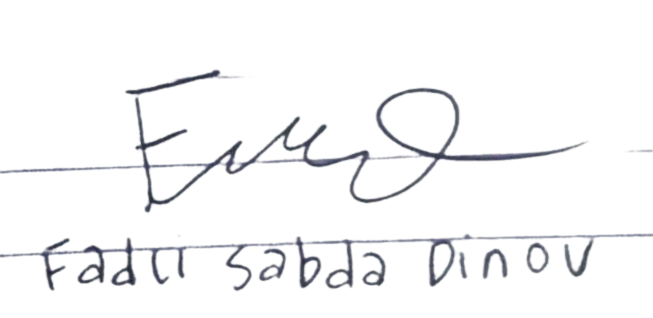 Fadli Sabda Dinov